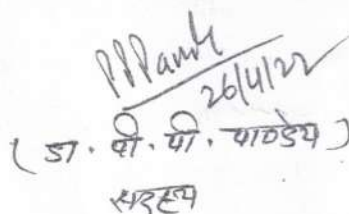 PPPande
26/4/22
( डा. पी. पी. पाण्डेय )
सदस्य